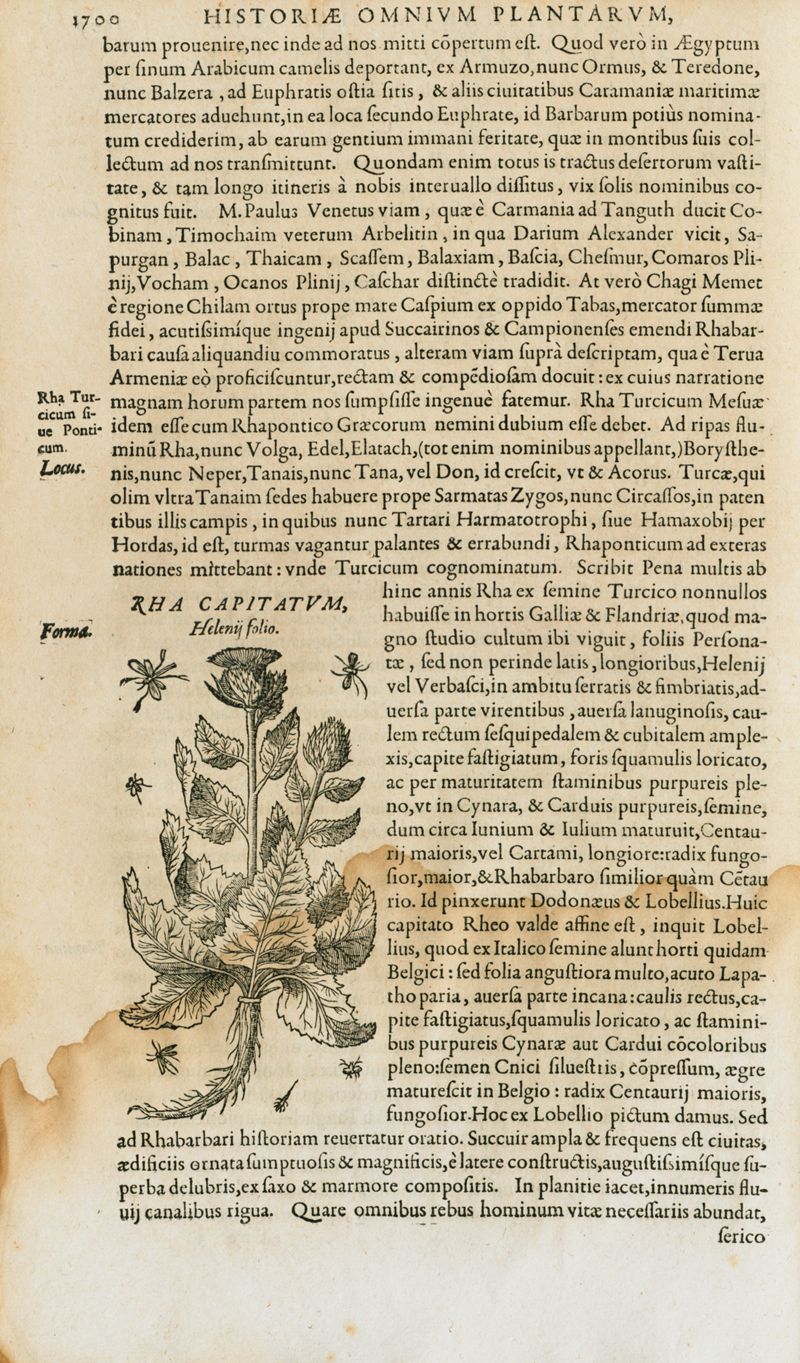 1700 HISTORIÆ OMNIVM PLANTARVM,
barum prouenire,nec inde ad nos mitti cõpertum eſt. Quod verò in Ægyptum
per ſinum Arabicum camelis deportant, ex Armuzo,nunc Ormus, & Teredone,
nunc Balzera , ad Euphratis oſtia ſitis , & aliis ciuitatibus Caramaniæ maritimæ
mercatores aduehunt,in ea loca ſecundo Euphrate, id Barbarum potiùs nomina-
tum crediderim, ab earum gentium immani feritate, quæ in montibus ſuis col-
lectum ad nos tranſmittunt. Quondam enim totus is tractus deſertorum vaſti-
tate, & tam longo itineris à nobis interuallo diſſitus, vix ſolis nominibus co-
gnitus fuit. M. Paulus Venetus viam , quæ è Carmania ad Tanguth ducit Co-
binam , Timochaim veterum Arbelitin , in qua Darium Alexander vicit, Sa-
purgan , Balac , Thaicam , Scaſſem, Balaxiam , Baſcia, Cheſmur, Comaros Pli-
nij,Vocham , Ocanos Plinij , Caſchar diſtinctè tradidit. At verò Chagi Memet
è regione Chilam ortus prope mare Caſpium ex oppido Tabas,mercator ſummæ
fidei , acutiſsimíque ingenij apud Succairinos & Campionenſes emendi Rhabar-
bari cauſa aliquandiu commoratus , alteram viam ſuprà deſcriptam, qua è Terua
Armeniæ eò proficiſcuntur,rectam & compẽdioſam docuit : ex cuius narratione
Rha Tur-
cicum ſi-
ue Ponti-
cum.
Locus.
magnam horum partem nos ſumpſiſſe ingenuè fatemur. Rha Turcicum Meſuæ
idem eſſe cum Rhapontico Græcorum nemini dubium eſſe debet. Ad ripas flu-
minũ Rha,nunc Volga, Edel,Elatach,(tot enim nominibus appellant,)Boryſthe-
nis,nunc Neper,Tanais,nunc Tana, vel Don, id creſcit, vt & Acorus. Turcæ,qui
olim vltra Tanaim ſedes habuere prope Sarmatas Zygos,nunc Circaſſos,in paten
tibus illis campis , in quibus nunc Tartari Harmatotrophi , ſiue Hamaxobij per
Hordas, id eſt, turmas vagantur palantes & errabundi , Rhaponticum ad exteras
nationes mittebant : vnde Turcicum cognominatum. Scribit Pena multis ab
RHA CAPITATVM,
Helenij folio.
Forma.
hinc annis Rha ex ſemine Turcico nonnullos
habuiſſe in hortis Galliæ & Flandriæ,quod ma-
gno ſtudio cultum ibi viguit, foliis Perſona-
tæ , ſed non perinde latis , longioribus,Helenij
vel Verbaſci,in ambitu ſerratis & fimbriatis,ad-
uerſa parte virentibus , auerſa lanuginoſis, cau-
lem rectum ſeſquipedalem & cubitalem ample-
xis,capite faſtigiatum, foris ſquamulis loricato,
ac per maturitatem ſtaminibus purpureis ple-
no,vt in Cynara, & Carduis purpureis,ſemine,
dum circa Iunium & Iulium maturuit,Centau-
rij maioris,vel Cartami, longiore:radix fungo-
ſior,maior,& Rhabarbaro ſimilior quàm Cẽtau
rio. Id pinxerunt Dodonæus & Lobellius.Huic
capitato Rheo valde affine eſt , inquit Lobel-
lius, quod ex Italico ſemine alunt horti quidam
Belgici : ſed folia anguſtiora multo,acuto Lapa-
tho paria, auerſa parte incana:caulis rectus,ca-
pite faſtigiatus,ſquamulis loricato , ac ſtamini-
bus purpureis Cynaræ aut Cardui cõcoloribus
pleno:ſemen Cnici ſilueſtris , cõpreſſum, ægre
matureſcit in Belgio : radix Centaurij maioris,
fungoſior.Hoc ex Lobellio pictum damus. Sed
ad Rhabarbari hiſtoriam reuertatur oratio. Succuir ampla & frequens eſt ciuitas,
ædificiis ornata ſumptuoſis & magnificis,è latere conſtructis,auguſtiſsimíſque ſu-
perba delubris,ex ſaxo & marmore compoſitis. In planitie iacet,innumeris flu-
uij canalibus rigua. Quare omnibus rebus hominum vitæ neceſſariis abundat,
ſerico